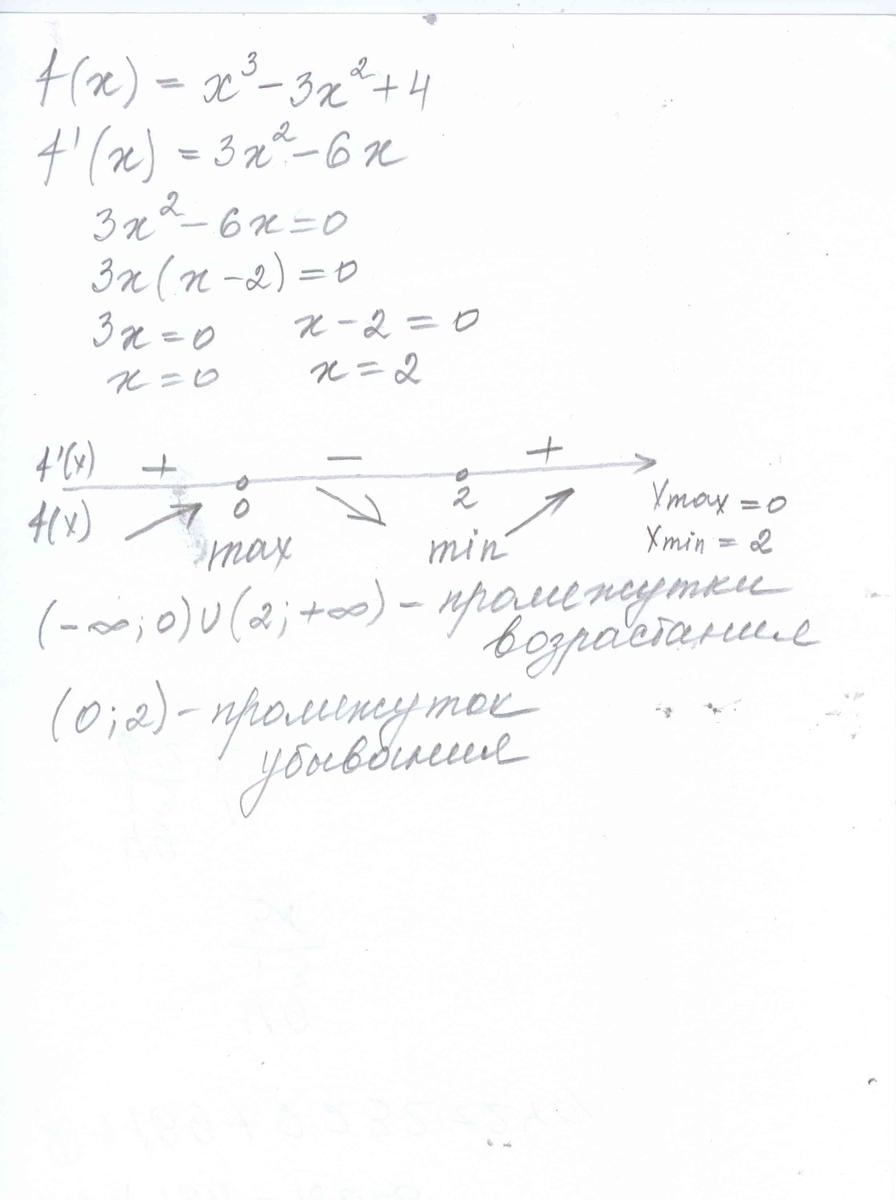 f(x) = x³ - 3x² + 4
f'(x) = 3x² - 6x
3x² - 6x = 0
3x(x - 2) = 0
3x = 0 x - 2 = 0
x = 0 x = 2
f'(x) + - +
f(x) 0 2
max min
Xmax = 0
Xmin = 2
(-∞; 0) ∪ (2; +∞) - промежутки
возрастания
(0; 2) - промежуток
убывания